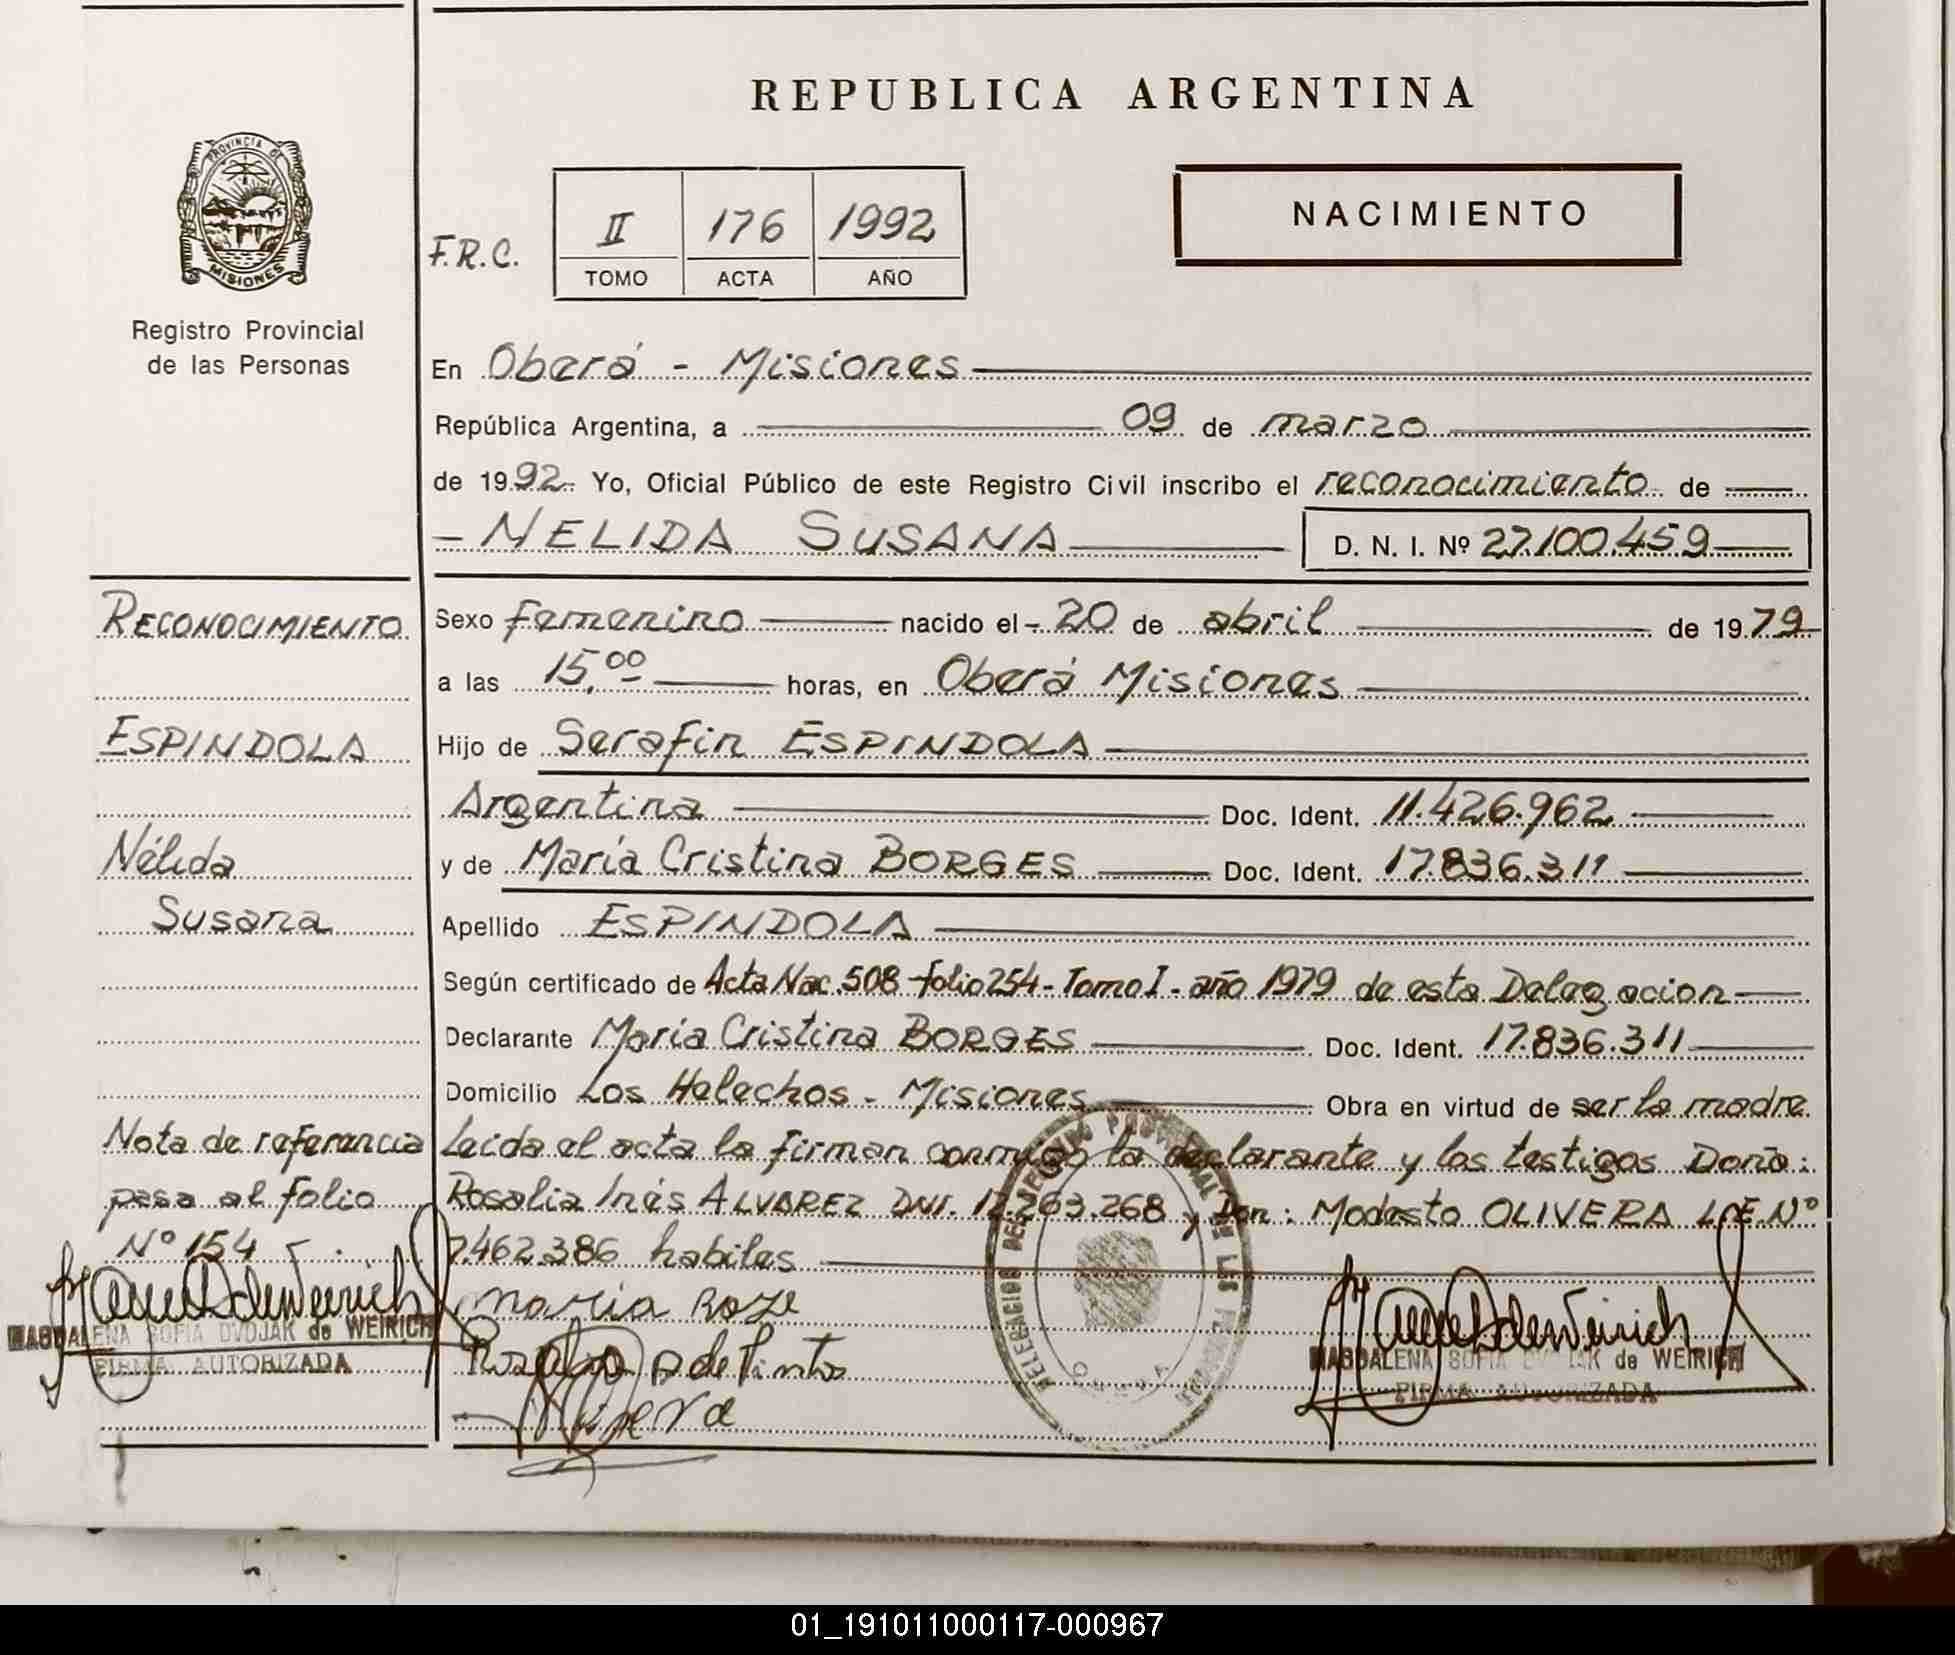 REPUBLICA ARGENTINA
PROVINCIA DE
MISIONES
Registro Provincial
de las Personas
F.R.C.
II 176 1992
TOMO ACTA AÑO
NACIMIENTO
En Oberá - Misiones
República Argentina, a 09 de marzo
de 1992. Yo, Oficial Público de este Registro Civil inscribo el reconocimiento de
NELIDA SUSANA D. N. I. Nº 27.100.459
Sexo femenino nacido el - 20 de abril de 1979
a las 15,00 horas, en Oberá Misiones
Hijo de Serafin ESPINDOLA
Argentina Doc. Ident. 11.426.962
y de María Cristina BORGES Doc. Ident. 17.836.311
Apellido ESPINDOLA
Según certificado de Acta Nac. 508 - folio 254 - Tomo I - año 1979 de esta Delegacion
Declarante María Cristina BORGES Doc. Ident. 17.836.311
Domicilio Los Helechos - Misiones Obra en virtud de ser la madre
Leida el acta la firman conmigo la declarante y los testigos Doña:
Rosalia Inés ALVAREZ DNI. 12.263.268 y Don: Modesto OLIVERA L.E. Nº
7.462.386 habiles
RECONOCIMIENTO
ESPINDOLA
Nélida
Susana
Nota de referencia
pasa al folio
Nº 154
MAGDALENA SOFIA DVOJAK de WEIRICH
FIRMA AUTORIZADA
MAGDALENA SOFIA DVOJAK de WEIRICH
FIRMA AUTORIZADA
01_191011000117-000967